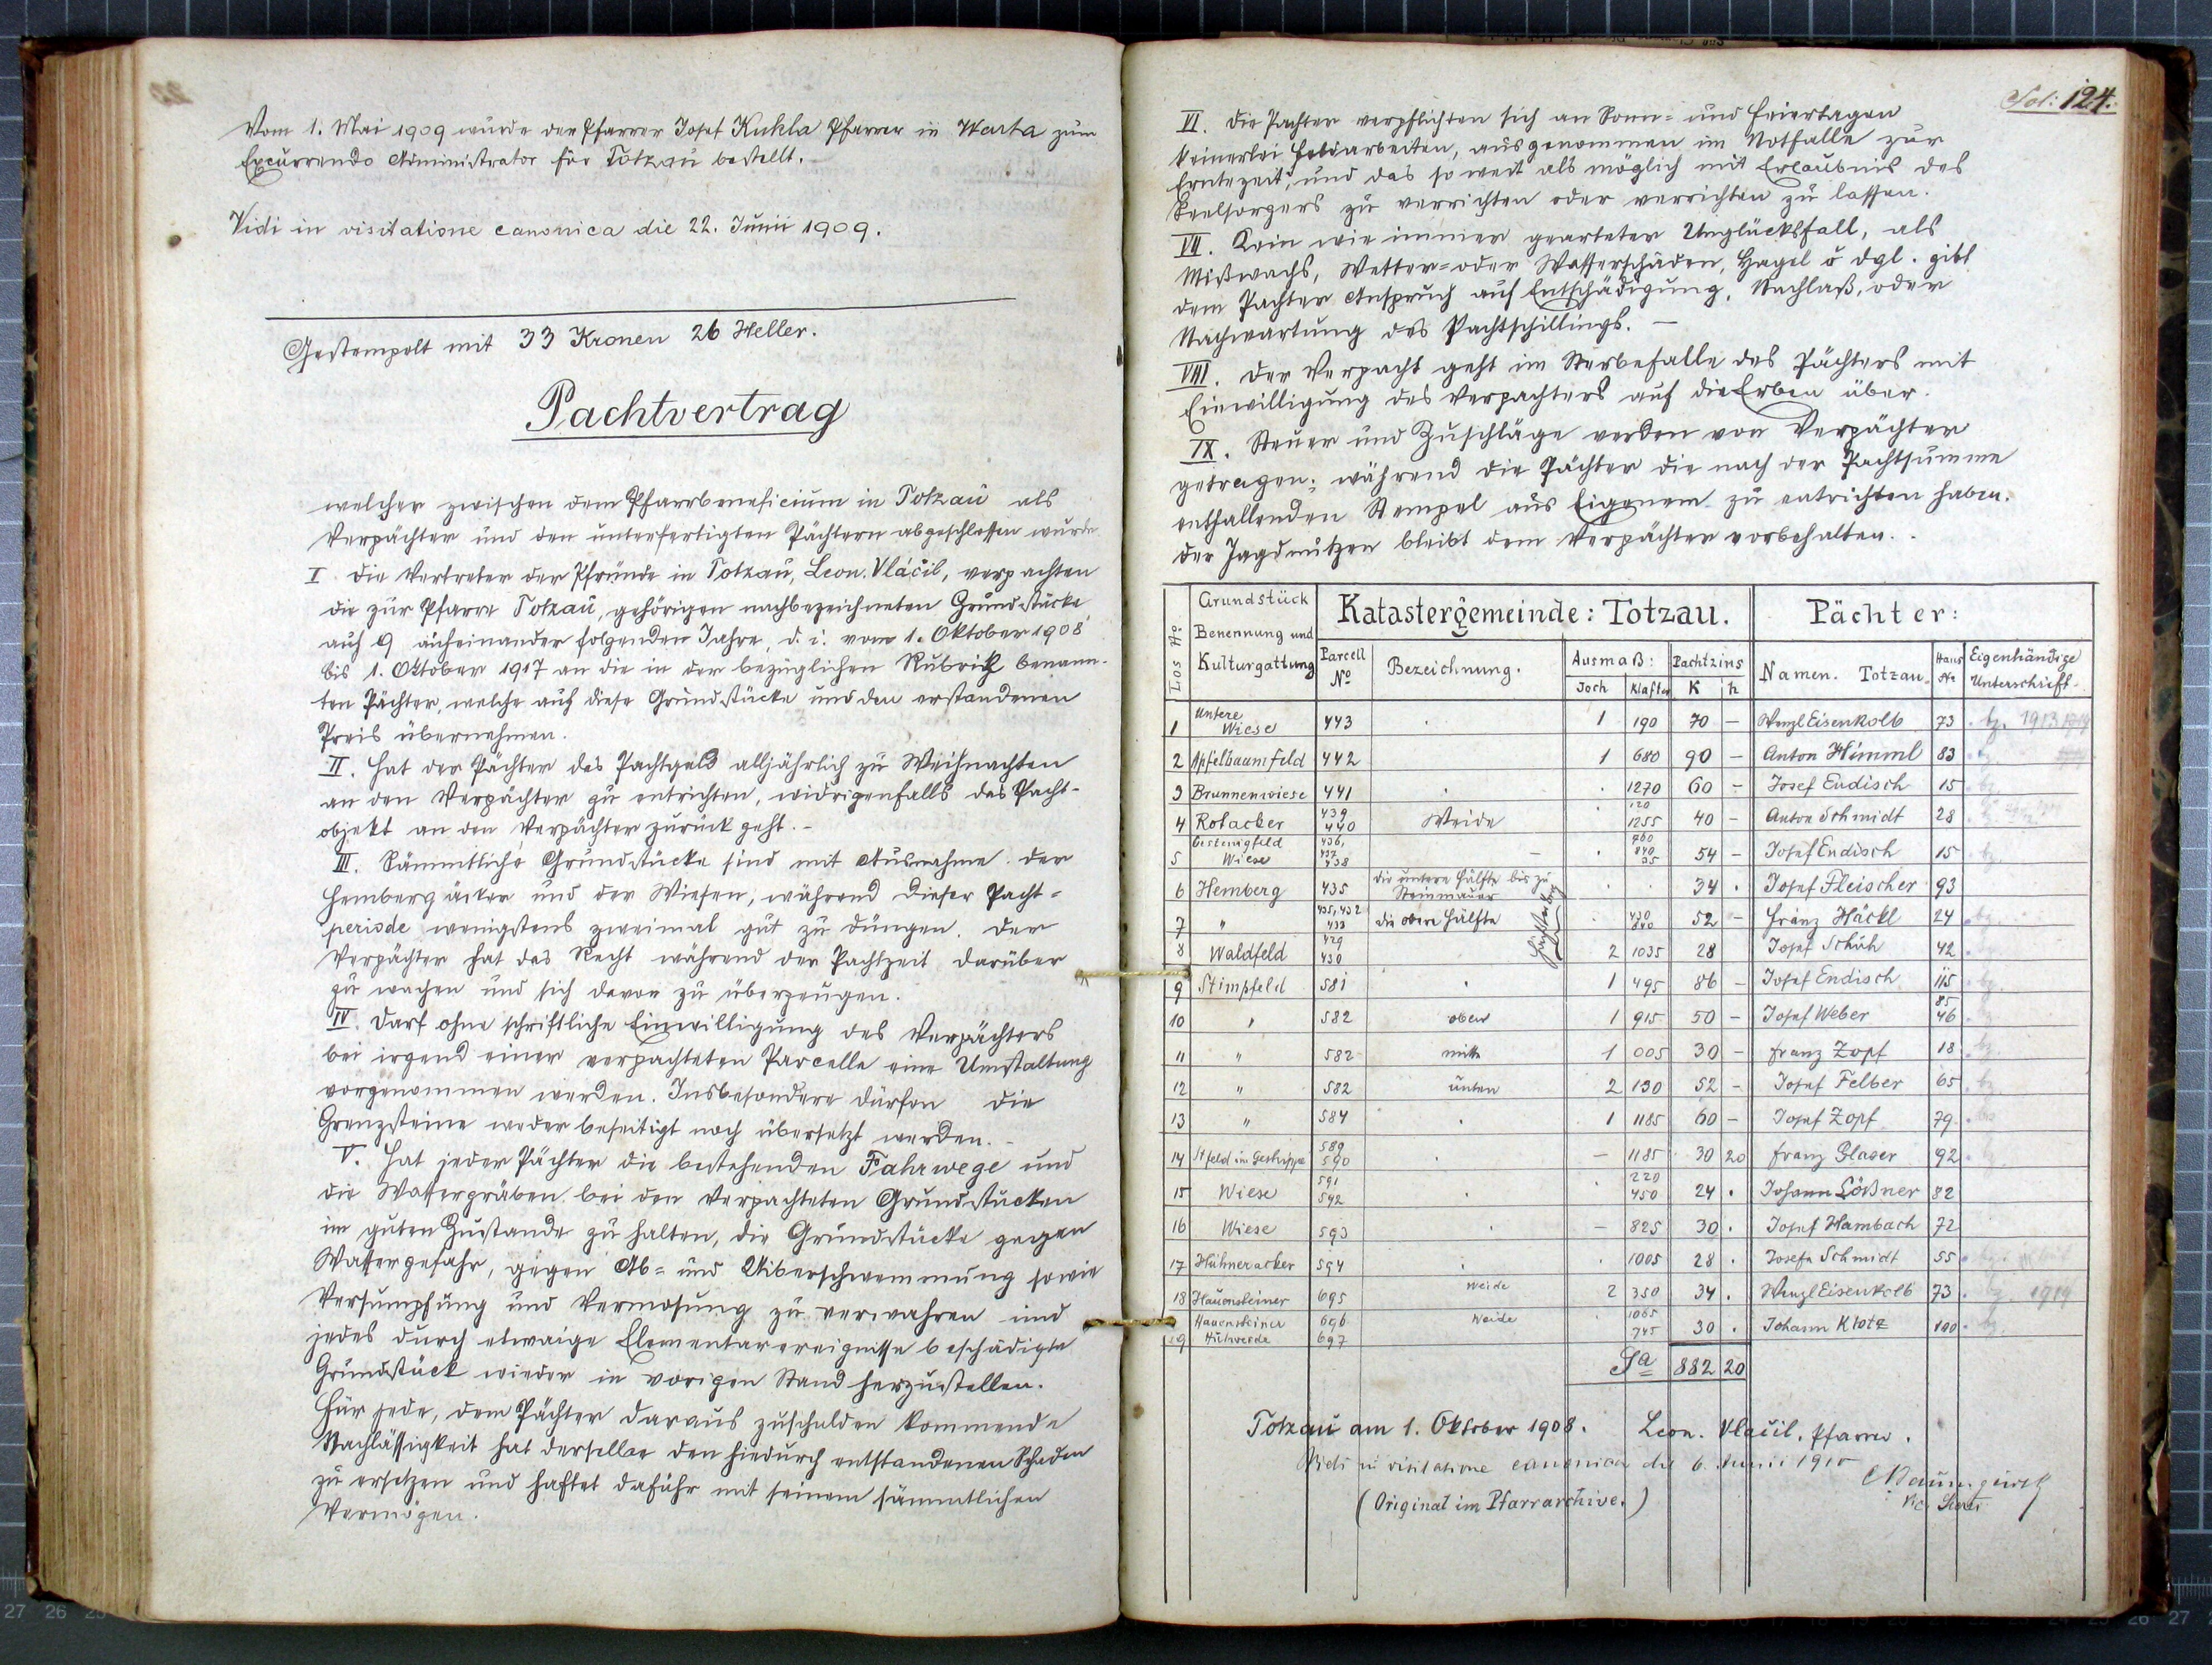 Vom 1. Mai 1909 wurde der Pfarrer Josef Kukla Pfarrer in Warta zum
Excurrendo Administrator für Totzau bestellt.
Vidi in visitatione canonica die 22. Junii 1909.
Gestempelt mit 33 Kronen 26 Heller.
Pachtvertrag
welcher zwischen dem Pfarrbeneficium in Totzau als
Verpächter und den unterfertigten Pächtern abgeschlossen wurde
I. Die Vertreter der Pfründe in Totzau, Leon. Vláčil, verpachten
die zur Pfarre Totzau, gehörigen nachbezeichneten Grundstücke
auf 9 aufeinander folgenden Jahre, d. i. vom 1. Oktober 1908
bis 1. Oktober 1917 an die in der bezüglichen Rubrick benann-
ten Pächter, welche auf diese Grundstücke und den erstandenen
Preis übernehmen.
II. Hat der Pächter das Pachtgeld alljährlich zu Weihnachten
an den Verpächter zu entrichten, widrigenfalls das Pacht-
objekt an den Verpächter zurück geht. -
III. Sämmtliche Grundstücke sind mit Ausnahme der
Hemberg äcker und der Wiesen, während dieser Pacht-
periode wenigstens zweimal gut zu düngen. Der
Verpächter hat das Recht während der Pachtzeit darüber
zu wachen und sich davon zu überzeugen.
IV. Darf ohne schriftliche Einwilligung des Verpächters
bei irgend einer verpachteten Parcelle eine Umstaltung
vorgenommen werden. Insbesondere dürfen die
Grenzsteine weder beseitigt noch übersetzt werden. -
V. Hat jeder Pächter die bestehenden Fahrwege und
die Wassergräben bei den verpachteten Grundstücken
im guten Zustande zu halten, die Grundstücke gegen
Wassergefahr, gegen Ab- und Uiberschwemmung sowie
Versumpfung und Vermosung zu verwahren und
jedes durch etwaige Elementarereignisse beschädigte
Grundstück wieder in vorigen Stand herzustellen.
Für jede, dem Pächter daraus zuschulden kommende
Nachlässigkeit hat derselbe den hiedurch entstandenen Schaden
zu ersetzen und haftet daführ mit seinem sämmtlichen
Vermögen.
Fol: 124.
VI. Die Pachter verpflichten sich an Sonn- und Feiertagen
keinerlei Feldarbeiten, ausgenommen im Notfalle zur
Erntezeit, und das so weit als möglich mit Erlaubnis des
Seelsorgers zu verrichten oder verrichten zu lassen.
VII. Kein wie immer gearteter Unglücksfall, als
Mißwachs, Wetter- oder Wasserschäden, Hagel u dgl. gibt
dem Pachter Anspruch auf Entschädigung, Nachlaß, oder
Nachwartung des Pachtschillings. -
VIII. Der Verpacht geht im Sterbefalle des Pächters mit
Einwilligung des Verpachters auf die Erben über.
IX. Steuer und Zuschläge werden von Verpächter
getragen; während die Pächter die nach der Pachtsumme
entfallenden Stempel aus Eigenem zu entrichten haben.
Der Jagdnutzen bleibt dem Verpächter vorbehalten.
Los No Grundstück Benennung und Kulturgattung Katastergemeinde: Totzau. Pächter:
Parcell No Bezeichnung. Ausmaß: Joch Klafter Pachtzins K h Namen. Totzau. Haus No Eigenhändige Unterschrift.
1 Untere Wiese 443 1 190 70 - Wenzl Eisenkolb 73 bz. 1913 1914
2 Apfelbaumfeld 442 1 680 90 - Anton Himml 83
3 Brunnenwiese 441 1270 60 - Josef Endisch 15 bz
4 Rotacker 439 440 Weide 120 1255 40 - Anton Schmidt 28
5 Wiese 436, 437 438 760 840 35 54 - Josef Endisch 15 bz.
6 Hemberg 435 die untere Hälfte bis zu Steinmauer 34 . Josef Fleischer 93
7 " 435, 432 433 die obere Hälfte 430 840 52 - Franz Häckl 24 bz.
8 Waldfeld 429 430 2 1035 28 Josef Schuh 42
9 Stimpfeld 581 1 495 86 - Josef Endisch 115 bz.
10 " 582 oben 1 915 50 - Josef Weber 85 46
11 " 582 mitte 1 005 30 - Franz Zopf 18 bz
12 " 582 unten 2 130 52 - Josef Felber 65 bz
13 " 584 1 1185 60 - Josef Zopf 79
14 Stfeld im Gestrippe 589 590 - 1185 30 20 Franz Glaser 92
15 Wiese 591 592 220 450 24 . Johann Lößner 82
16 Wiese 593 - 825 30 . Josef Hambach 72
17 Hühneracker 594 1005 28 . Josefa Schmidt 55
18 Hauensteiner 695 Weide 2 350 34 . Wenzl Eisenkolb 73 bz. 1914
19 Hauensteiner Hutweide 696 697 Weide 1065 745 30 . Johann Klotz 100 bz.
Sa 882 20
Totzau am 1. Oktober 1908. Leon. Vláčil, Pfarrer.
Vidi in visitatione canonica die 6. Junii 1910
(Original im Pfarrarchive.)